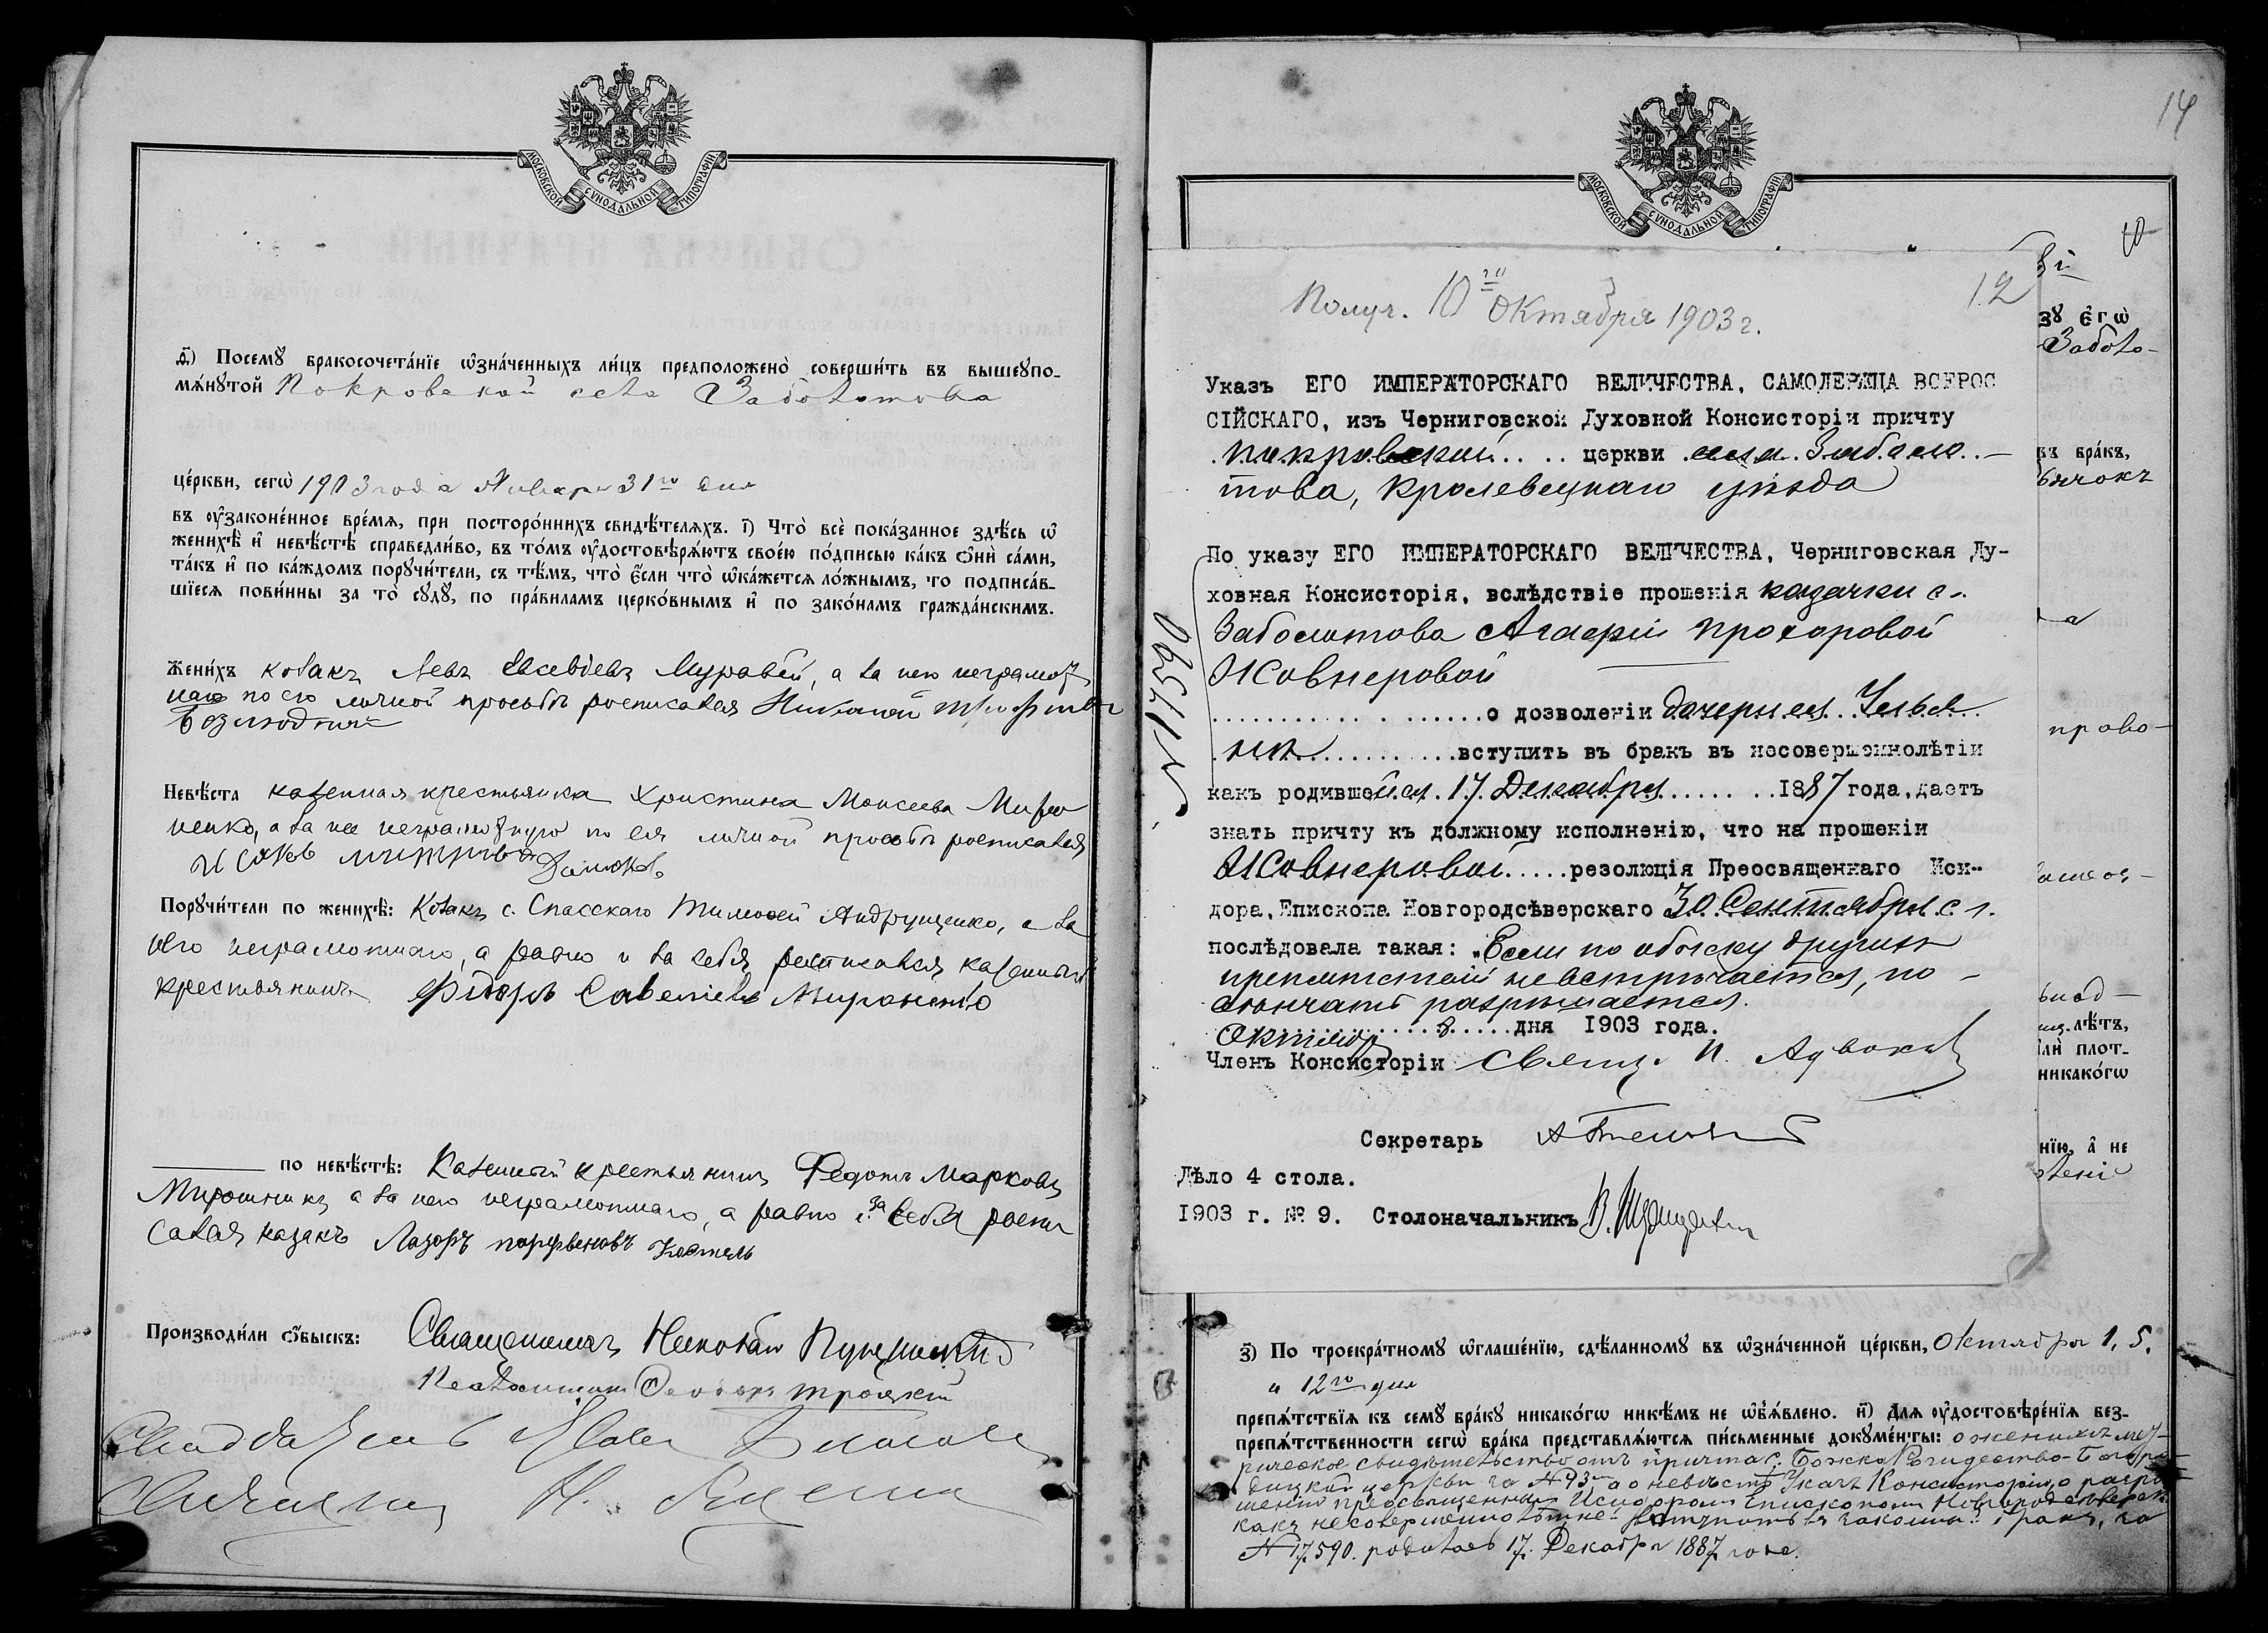 МОСКОВСКОЙ СѴНОДАЛЬНОЙ ТИПОГРАФІИ
д҃) Посемꙋ бракосочета́нїе ѡ҆зна́ченныхъ ли́цъ предположено̀ соверши́ть въ вышеꙋпо-
мѧ́нꙋтой Покровской села Заболотова
це́ркви, сегѡ̀ 1903 года Января 31го дня
въ ᲂу҆законе́нное вре́мѧ, при посторо́ннихъ свидѣ́телѧхъ. і҃) Что̀ всѐ пока́занное здѣ́сь ѡ҆
женихѣ̀ и҆ невѣ́стѣ справедли́во, въ то́мъ ᲂу҆достовѣрѧ́ютъ свое́ю по́дписью ка́къ ѻ҆нѝ са́ми,
та́къ и҆ по ка́ждомъ порꙋчи́тели, съ тѣ́мъ, что̀ є҆́сли что̀ ѡ҆ка́жетсѧ ло́жнымъ, то подписа́в-
шїесѧ пови́нны за то̀ сꙋдꙋ̀, по пра́виламъ церко́внымъ и҆ по зако́намъ гражда́нскимъ.
Жени́хъ козакъ Левъ Евсевіевъ Муравей, а за него неграмот
наго по его личной просьбѣ росписался Николай
Невѣ́ста казенная крестьянка Христина Моисеева Миро
ненко, а за нее неграмотную по ея личной просьбѣ росписался
Порꙋчи́тели по женихѣ̀: Козакъ с. Спасскаго Тимофей Андрущенко, а за
него неграмотнаго, а равно и за себя росписался казенный
крестьянинъ Фіодоръ Савеліевъ Мироненко
по невѣ́стѣ: Казенный крестьянинъ Федотъ Марковъ
Мирошникъ а за него неграмотнаго, а равно и за себя роспи
сался казакъ Лазоръ Парфеновъ Костель
Производи́ли ѻ҆́быскъ: Священникъ
Псаломщикъ Троцкій
14
МОСКОВСКОЙ СѴНОДАЛЬНОЙ ТИПОГРАФІИ
12
Получ. 10го Октября 1903 г.
Указъ ЕГО ИМПЕРАТОРСКАГО ВЕЛИЧЕСТВА, САМОДЕРЖЦА ВСЕРОС
СІЙСКАГО, изъ Черниговской Духовной Консисторіи причту
Покровской церкви села Заболо-
това, Кролевецкаго уѣзда
По указу ЕГО ИМПЕРАТОРСКАГО ВЕЛИЧЕСТВА, Черниговская Ду-
ховная Консисторія, вслѣдствіе прошенія казачки с.
Заболотова Прохоровой
Жовнеровой
о дозволеніи дочери ея Улья
нѣ вступить въ бракъ въ несовершеннолѣтіи
какъ родившейся 17 Декабря 1887 года, даетъ
знать причту къ должному исполненію, что на прошеніи
Жовнеровой резолюція Преосвященнаго Иси-
дора, Епископа Новгородсѣверскаго 30 Сентября с. г.
послѣдовала такая: „Если по обыску другихъ
препятствій не встрѣчается, по-
вѣнчать разрѣшается.
Октября 8 дня 1903 года.
Членъ Консисторіи Свящ. И.
Секретарь
Дѣло 4 стола.
1903 г. № 9. Столоначальникъ
№ 17590
зꙋ є҆гѡ̀
Заболо-
въ бра́къ,
право-
лѣ́тъ,
плот-
никако́гѡ
нїю, а҆ не
з҃) По троекра́тномꙋ ѡ҆глаше́нїю, сдѣ́ланномꙋ въ ѡ҆зна́ченной це́ркви, Октября 1, 5,
и 12го дня
препѧ́тствїѧ къ семꙋ̀ бра́кꙋ никако́гѡ никѣ́мъ не ѡ҆б̾ѧ́влено. и҃) Длѧ ᲂу҆достовѣре́нїѧ без-
препѧ́тственности сегѡ̀ бра́ка представлѧ́ютсѧ пи́сьменные докꙋме́нты: о женихѣ мет-
рическое свидѣтельство отъ причта с. Божка Рождество-Богоро
дицкой церкви за № 43 а о невѣстѣ Указъ Консисторіи, о разрѣ
шеніи преосвященнымъ Исидоромъ Епископомъ Новгородсѣверск.
какъ несовершеннолѣтней вступить въ законный бракъ, за
№ 17590. родилась 17. Декабря 1887 года.